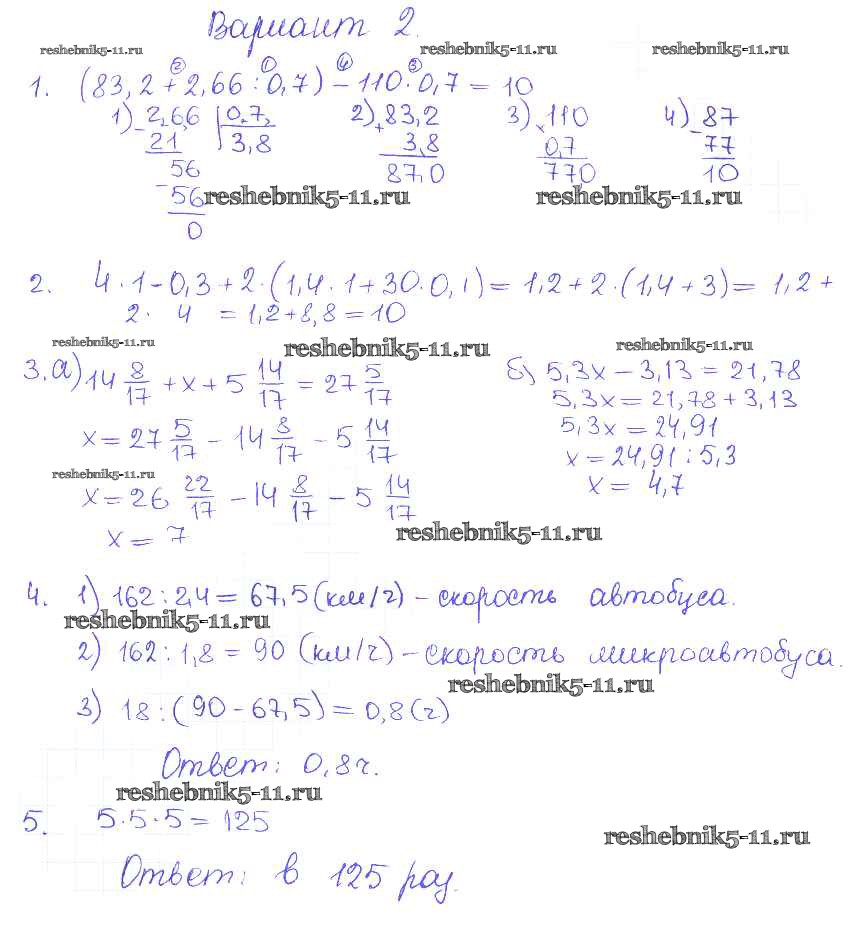 Вариант 2.
reshebnik5-11.ru reshebnik5-11.ru reshebnik5-11.ru
② ① ④ ③
1. (83,2 + 2,66 : 0,7) - 110 · 0,7 = 10
1) 2,66 | 0,7 2) 83,2 3) 110 4) 87
- 21 | 3,8 + 3,8 × 0,7 - 77
56 87,0 770 10
- 56 reshebnik5-11.ru reshebnik5-11.ru
0
2. 4 · 1 - 0,3 + 2 · (1,4 · 1 + 30 · 0,1) = 1,2 + 2 · (1,4 + 3) = 1,2 +
2 · 4 = 1,2 + 8,8 = 10
reshebnik5-11.ru reshebnik5-11.ru reshebnik5-11.ru
3. а) 14 8/17 + x + 5 14/17 = 27 5/17
x = 27 5/17 - 14 8/17 - 5 14/17
reshebnik5-11.ru
x = 26 22/17 - 14 8/17 - 5 14/17
x = 7
б) 5,3x - 3,13 = 21,78
5,3x = 21,78 + 3,13
5,3x = 24,91
x = 24,91 : 5,3
x = 4,7
reshebnik5-11.ru
4. 1) 162 : 2,4 = 67,5 (км/ч) - скорость автобуса.
reshebnik5-11.ru
2) 162 : 1,8 = 90 (км/ч) - скорость микроавтобуса.
reshebnik5-11.ru
3) 18 : (90 - 67,5) = 0,8 (ч)
Ответ: 0,8 ч.
reshebnik5-11.ru
5. 5 · 5 · 5 = 125
reshebnik5-11.ru
Ответ: в 125 раз.